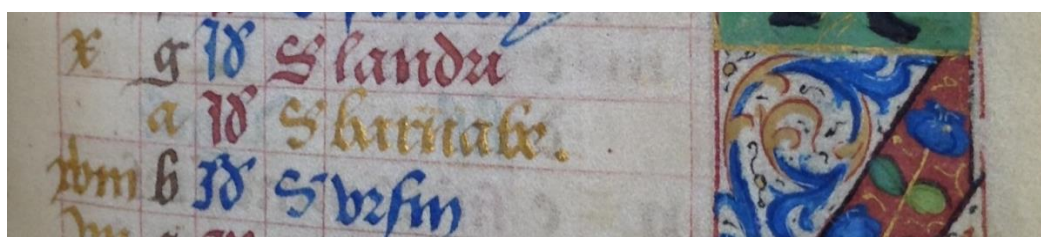 x g id S landri
a id S barnabe.
xviii b id S ursin